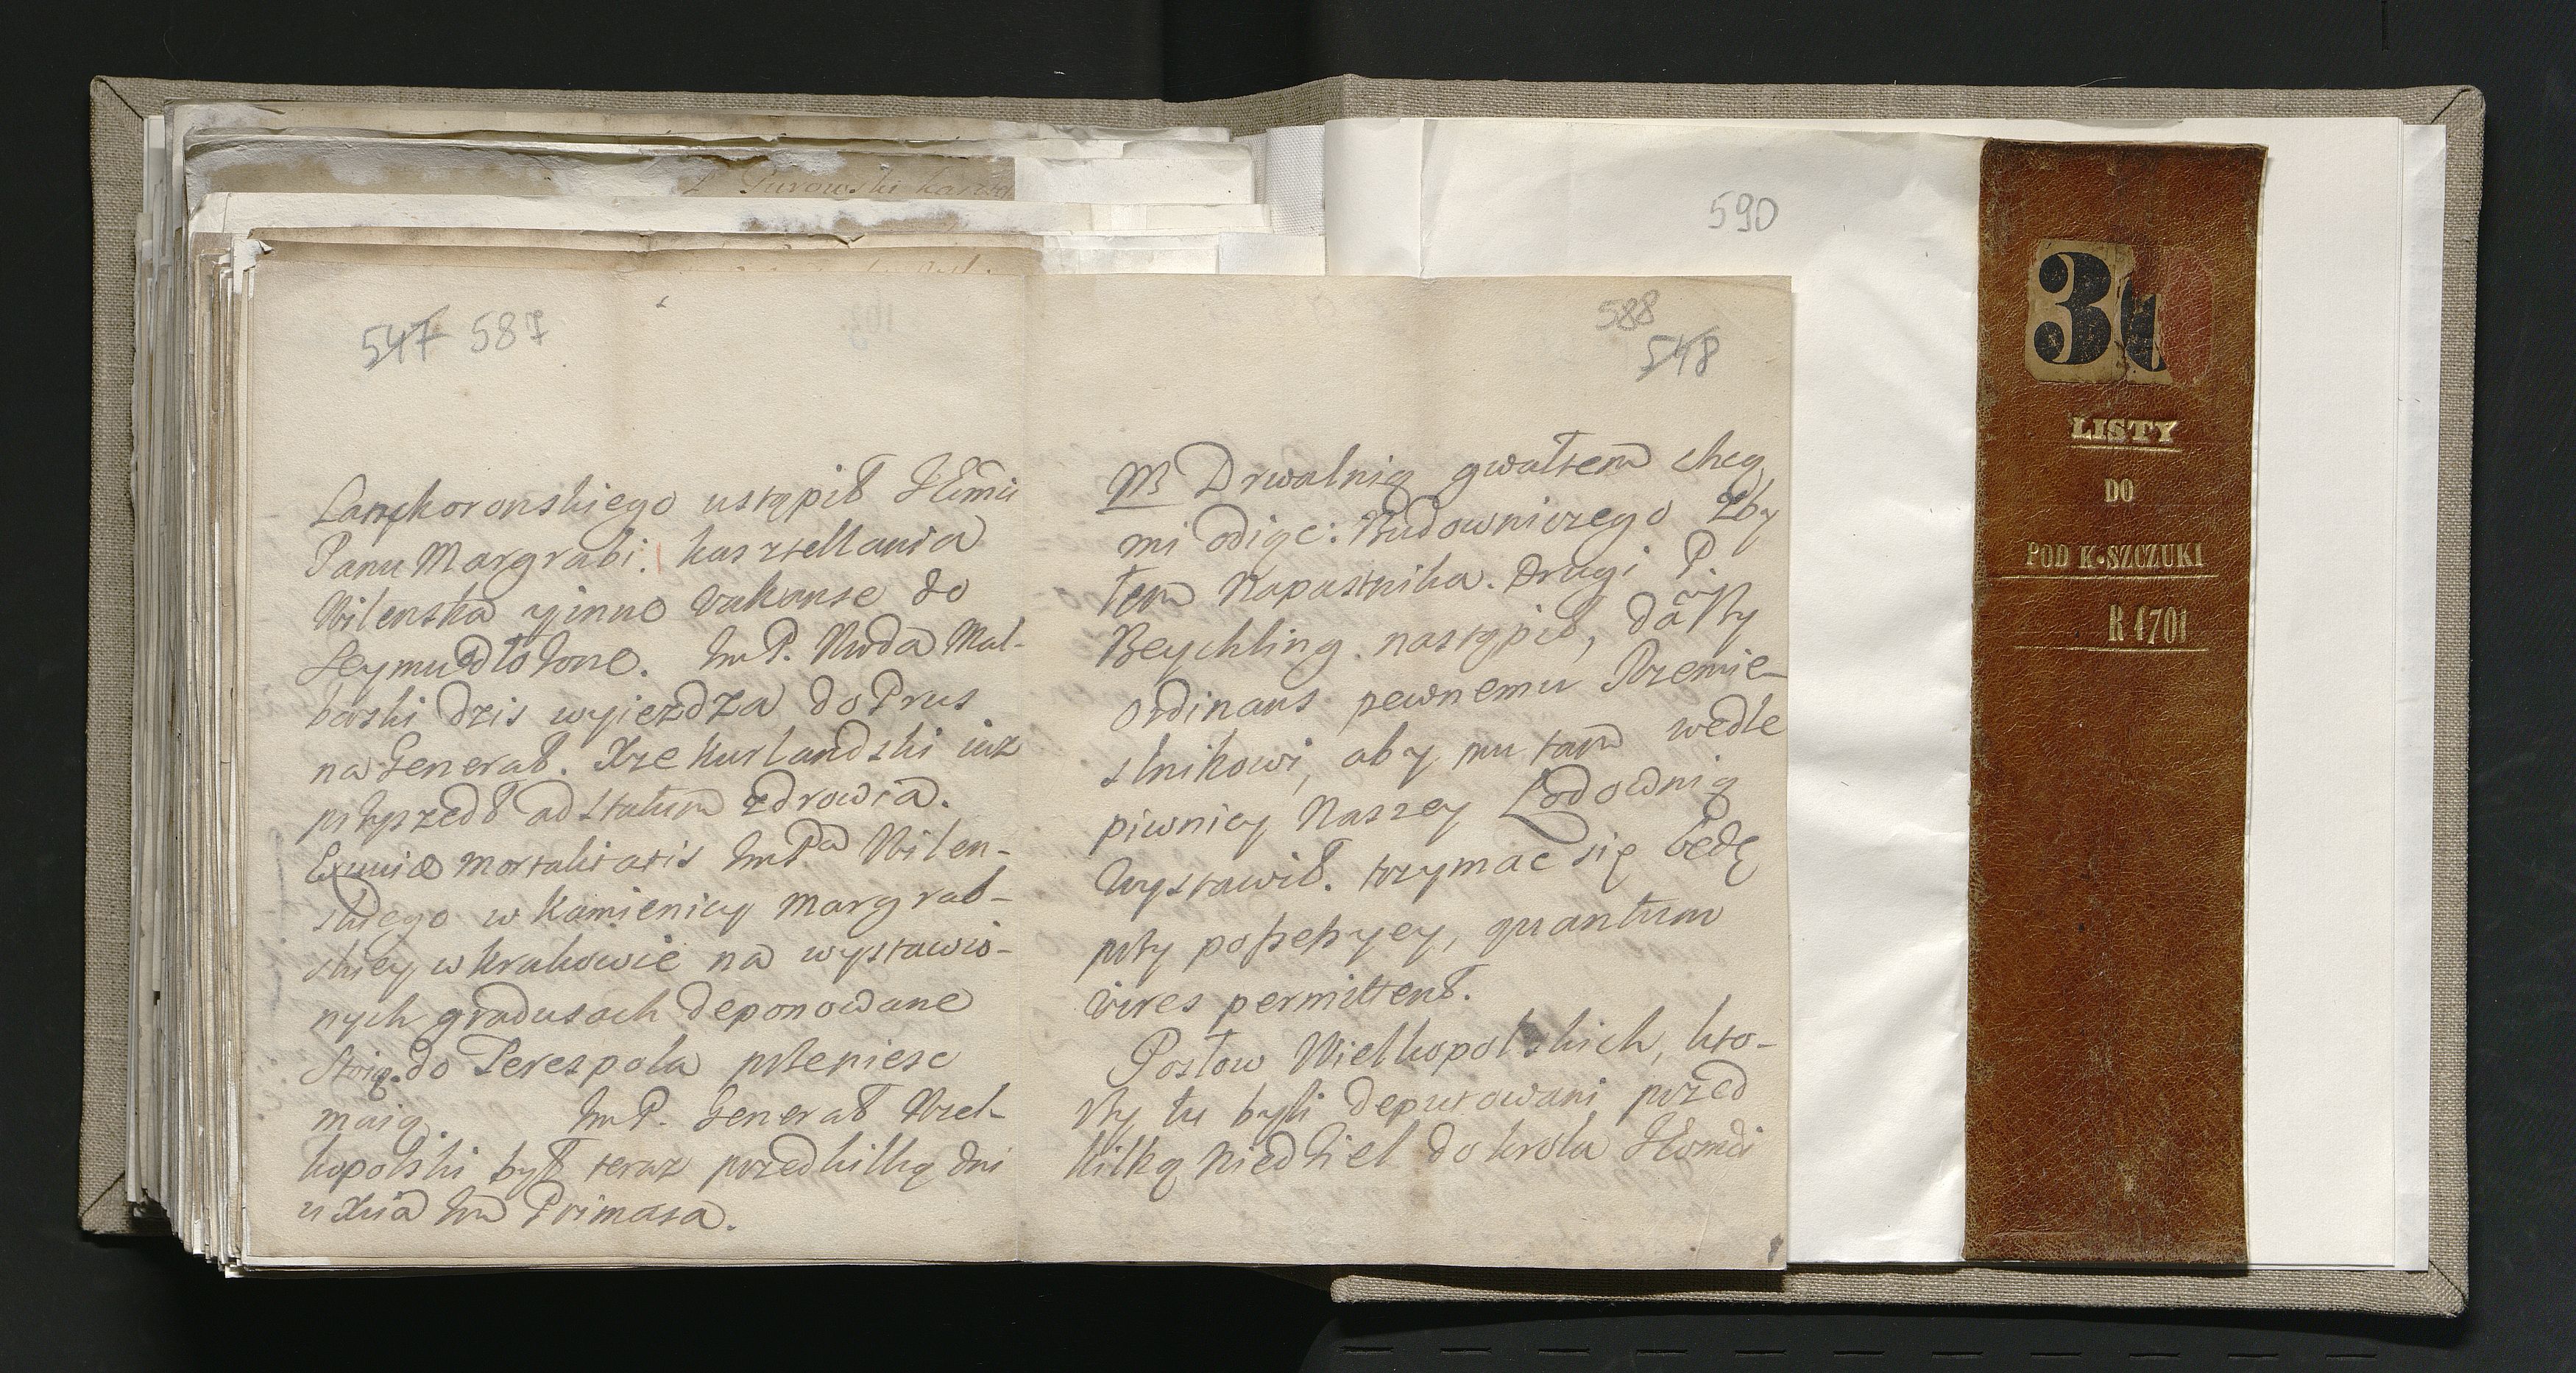 Purowski
547 587
Lanckoronskiego ustąpił JEmći
Panu Margrabi. Kasztellania
Wilenska y inne vakanse do
Seymu odłożone. ImP. Wwda Mal-
borski dzis wyiezdza do Prus
na Generał. Xże Kurlandski iuż
przyszedł ad statum zdrowia.
Exuviæ mortalitatis ImPa Wilen-
skiego w Kamienicy Margrab-
skiey w Krakowie na wystawio-
nych gradusach deponowane
stoią. do Terespola przeniesc
maią. ImP. Generał Wiel-
kopolski był teraz przed kilką dni
u Xcia Im Primasa.
588
548
M Drwalnią gwałtem chcą
mi odiąc: Budowniczego zby
łem Napastnika. Drugi P
Beychling nastąpił, dawszy
ordinans pewnemu Rzemie-
slnikowi, aby mu tam wedle
piwnicy Naszey Lodownią
wystawił. trzymac się będę
przy possessyey, quantum
vires permittent.
Posłow Wielkopolskich, kto-
rzy tu byli deputowani przed
kilką Niedziel do krola JEomći
590
3
LISTY
DO
POD K. SZCZUKI
R 1701